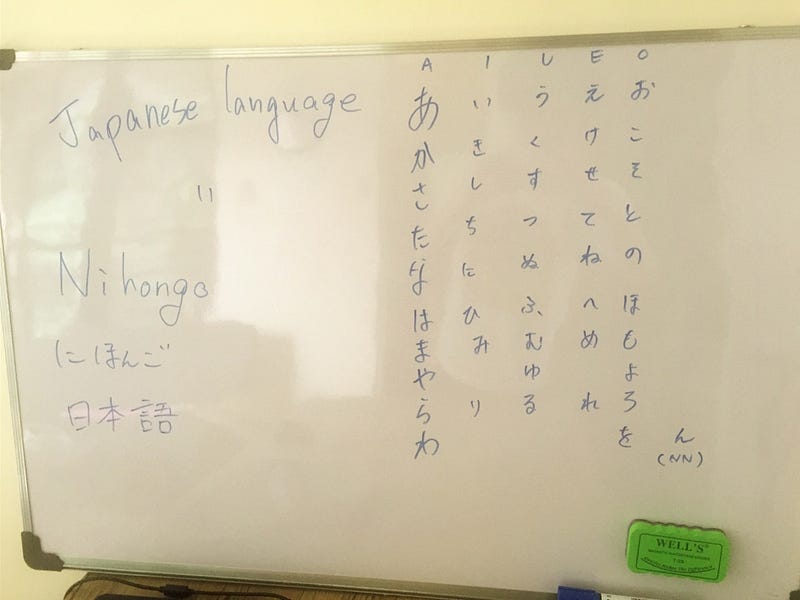 Japanese language
||
Nihongo
にほんご
日本語
A I U E O
あ い う え お
か き く け こ
さ し す せ そ
た ち つ て と
な に ぬ ね の
は ひ ふ へ ほ
ま み む め も
や ゆ よ
ら り る れ ろ
わ を ん
(NN)
WELL'S®